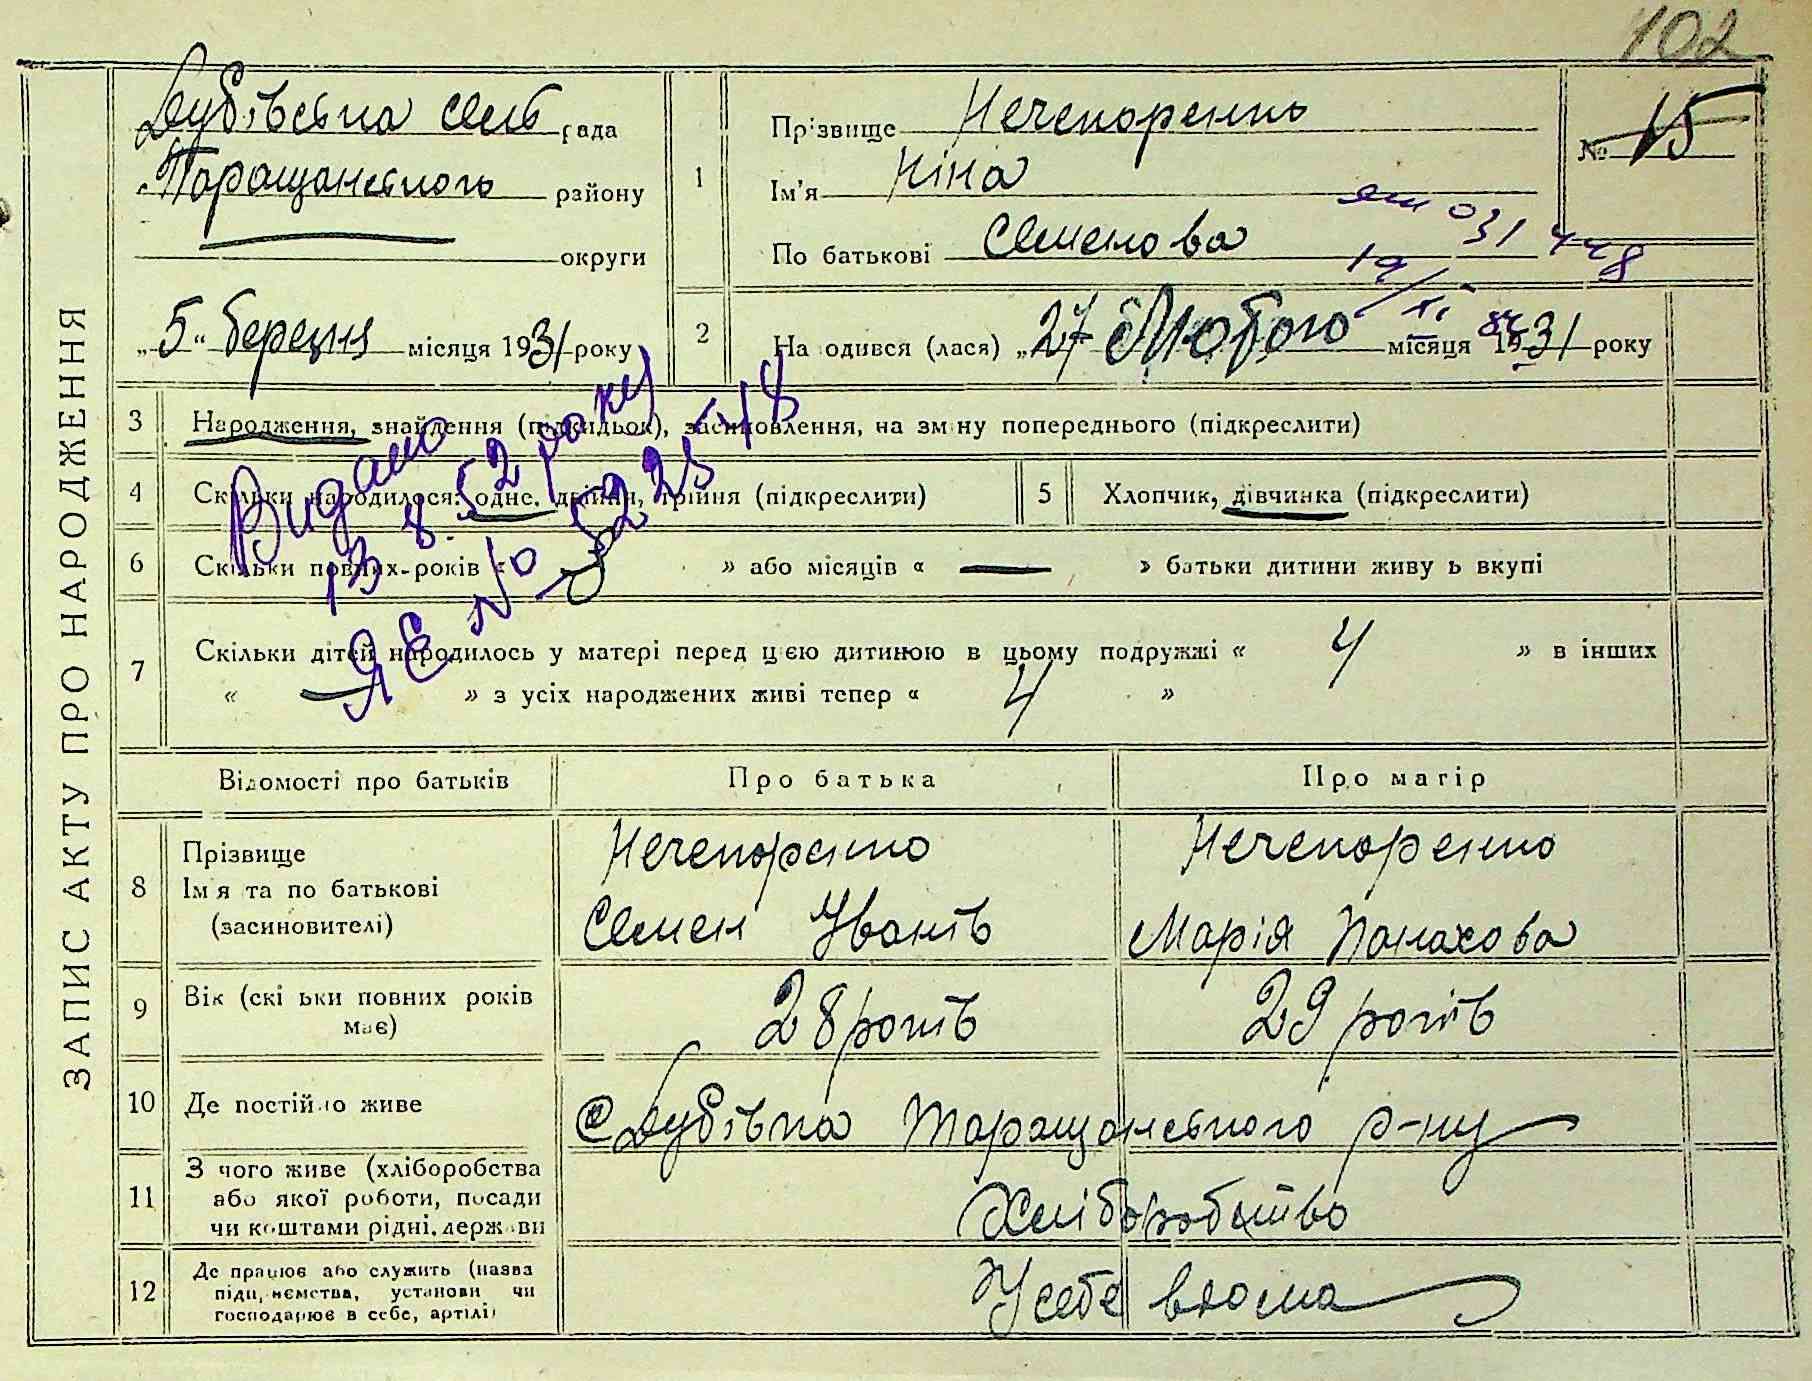 102
ЗАПИС АКТУ ПРО НАРОДЖЕННЯ
Дубівська сіль рада
Таращанського району
округи
„5“ березня місяця 1931 року
1 Прізвище Нечепоренко
Ім'я Ніна
По батькові Семенова
№ 15
031 448
19/XI 84
2 Народився (лася) „27 Лютого місяця 1931 року
3 Народження, знайдення (підкидьок), засиновлення, на зміну попереднього (підкреслити)
4 Скільки народилося: одне, двійня, трійня (підкреслити)
5 Хлопчик, дівчинка (підкреслити)
6 Скільки повних-років « » або місяців « — » батьки дитини живуть вкупі
Видано
13 8 52 року
ЯЕ №
7 Скільки дітей народилось у матері перед цією дитиною в цьому подружжі « 4 » в інших
« — » з усіх народжених живі тепер « 4 »
Відомості про батьків
Про батька
Про матір
8 Прізвище
Ім'я та по батькові
(засиновителі)
Нечепоренко
Семен Іванів
Нечепоренко
Марія Панасова
9 Вік (скільки повних років
має)
28 років
29 років
10 Де постійно живе
с Дубівка Таращанського р-ну
11 З чого живе (хліборобства
або якої роботи, посади
чи коштами рідні, держави
Хліборобство
12 Де працює або служить (назва
підприємства, установи чи
господарює в себе, артілі)
У себе вдома